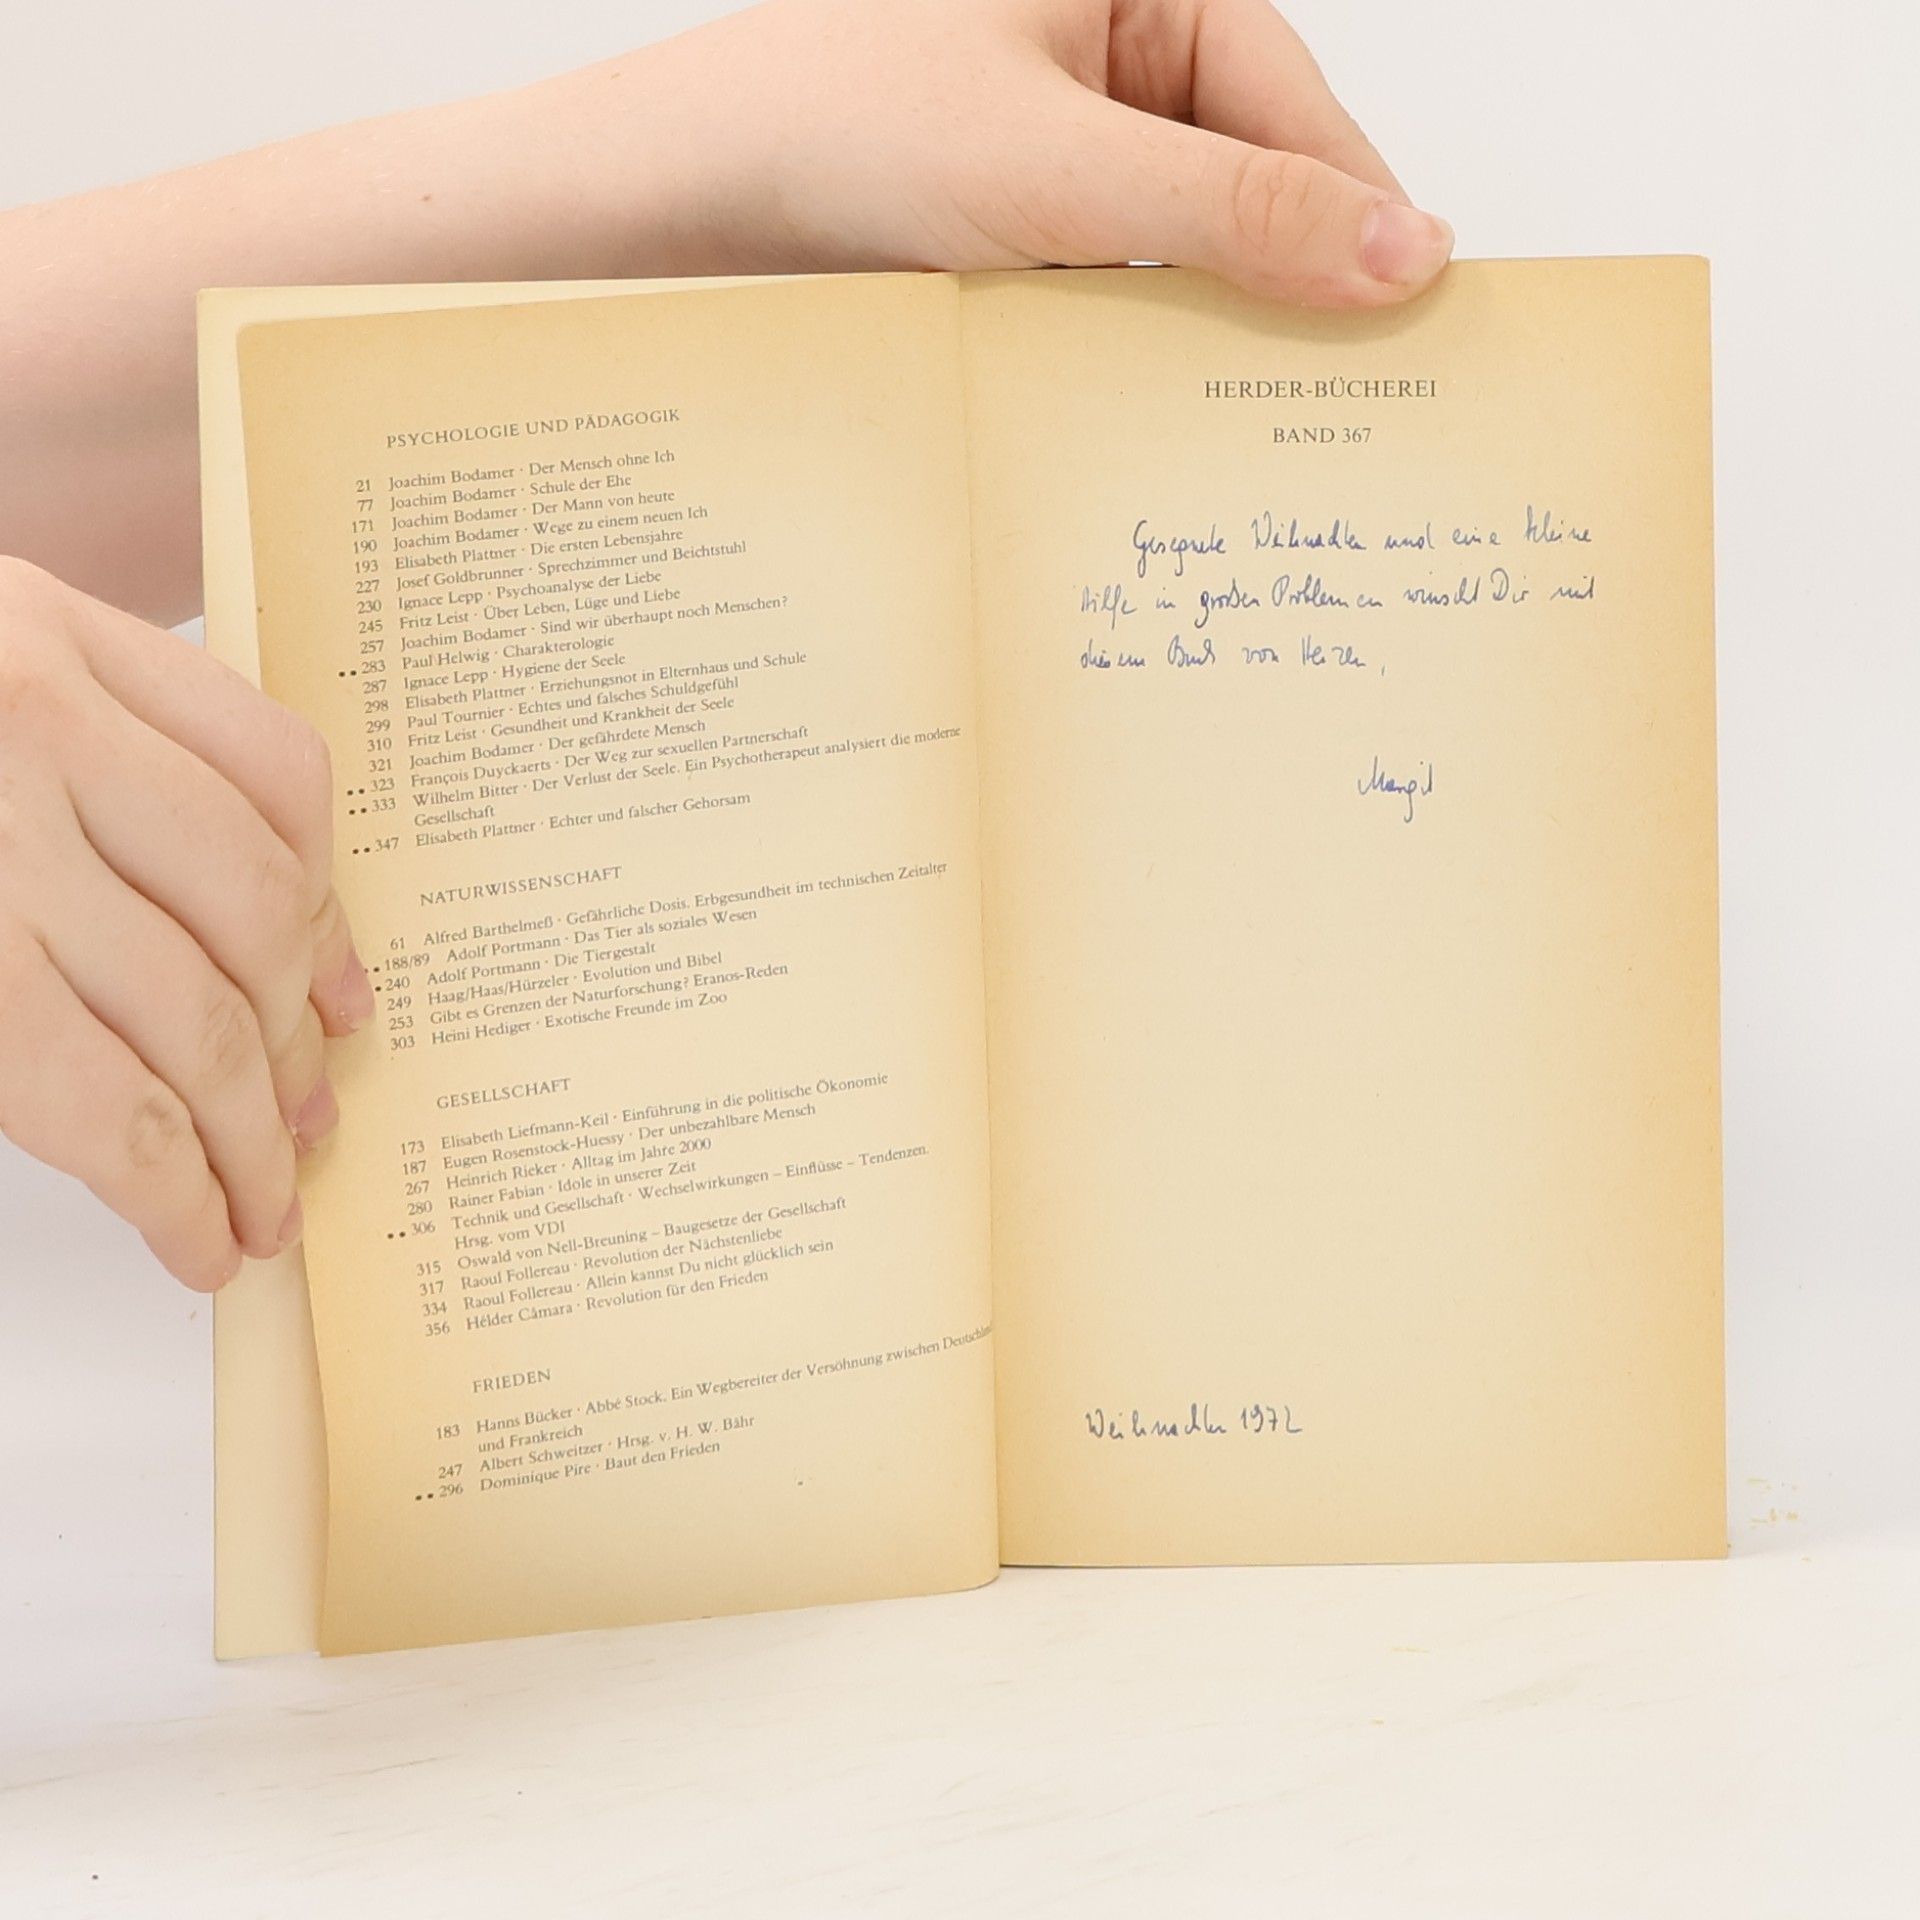 PSYCHOLOGIE UND PÄDAGOGIK
21 Joachim Bodamer · Der Mensch ohne Ich
77 Joachim Bodamer · Schule der Ehe
171 Joachim Bodamer · Der Mann von heute
190 Joachim Bodamer · Wege zu einem neuen Ich
193 Elisabeth Plattner · Die ersten Lebensjahre
227 Josef Goldbrunner · Sprechzimmer und Beichtstuhl
230 Ignace Lepp · Psychoanalyse der Liebe
245 Fritz Leist · Über Leben, Lüge und Liebe
257 Joachim Bodamer · Sind wir überhaupt noch Menschen?
•• 283 Paul Helwig · Charakterologie
287 Ignace Lepp · Hygiene der Seele
298 Elisabeth Plattner · Erziehungsnot in Elternhaus und Schule
299 Paul Tournier · Echtes und falsches Schuldgefühl
310 Fritz Leist · Gesundheit und Krankheit der Seele
321 Joachim Bodamer · Der gefährdete Mensch
•• 323 François Duyckaerts · Der Weg zur sexuellen Partnerschaft
•• 333 Wilhelm Bitter · Der Verlust der Seele. Ein Psychotherapeut analysiert die moderne
Gesellschaft
•• 347 Elisabeth Plattner · Echter und falscher Gehorsam
NATURWISSENSCHAFT
61 Alfred Barthelmeß · Gefährliche Dosis. Erbgesundheit im technischen Zeitalter
•• 188/89 Adolf Portmann · Das Tier als soziales Wesen
• 240 Adolf Portmann · Die Tiergestalt
249 Haag/Haas/Hürzeler · Evolution und Bibel
253 Gibt es Grenzen der Naturforschung? Eranos-Reden
303 Heini Hediger · Exotische Freunde im Zoo
GESELLSCHAFT
173 Elisabeth Liefmann-Keil · Einführung in die politische Ökonomie
187 Eugen Rosenstock-Huessy · Der unbezahlbare Mensch
267 Heinrich Rieker · Alltag im Jahre 2000
280 Rainer Fabian · Idole in unserer Zeit
•• 306 Technik und Gesellschaft · Wechselwirkungen – Einflüsse – Tendenzen.
Hrsg. vom VDI
315 Oswald von Nell-Breuning – Baugesetze der Gesellschaft
317 Raoul Follereau · Revolution der Nächstenliebe
334 Raoul Follereau · Allein kannst Du nicht glücklich sein
356 Hélder Câmara · Revolution für den Frieden
FRIEDEN
183 Hanns Bücker · Abbé Stock. Ein Wegbereiter der Versöhnung zwischen
und Frankreich
247 Albert Schweitzer · Hrsg. v. H. W. Bähr
•• 296 Dominique Pire · Baut den Frieden
HERDER-BÜCHEREI
BAND 367
Gesegnete Weihnachten und eine kleine
Hilfe in großen Problemen wünscht Dir mit
diesem Buch von Herzen,
Margit
Weihnachten 1972